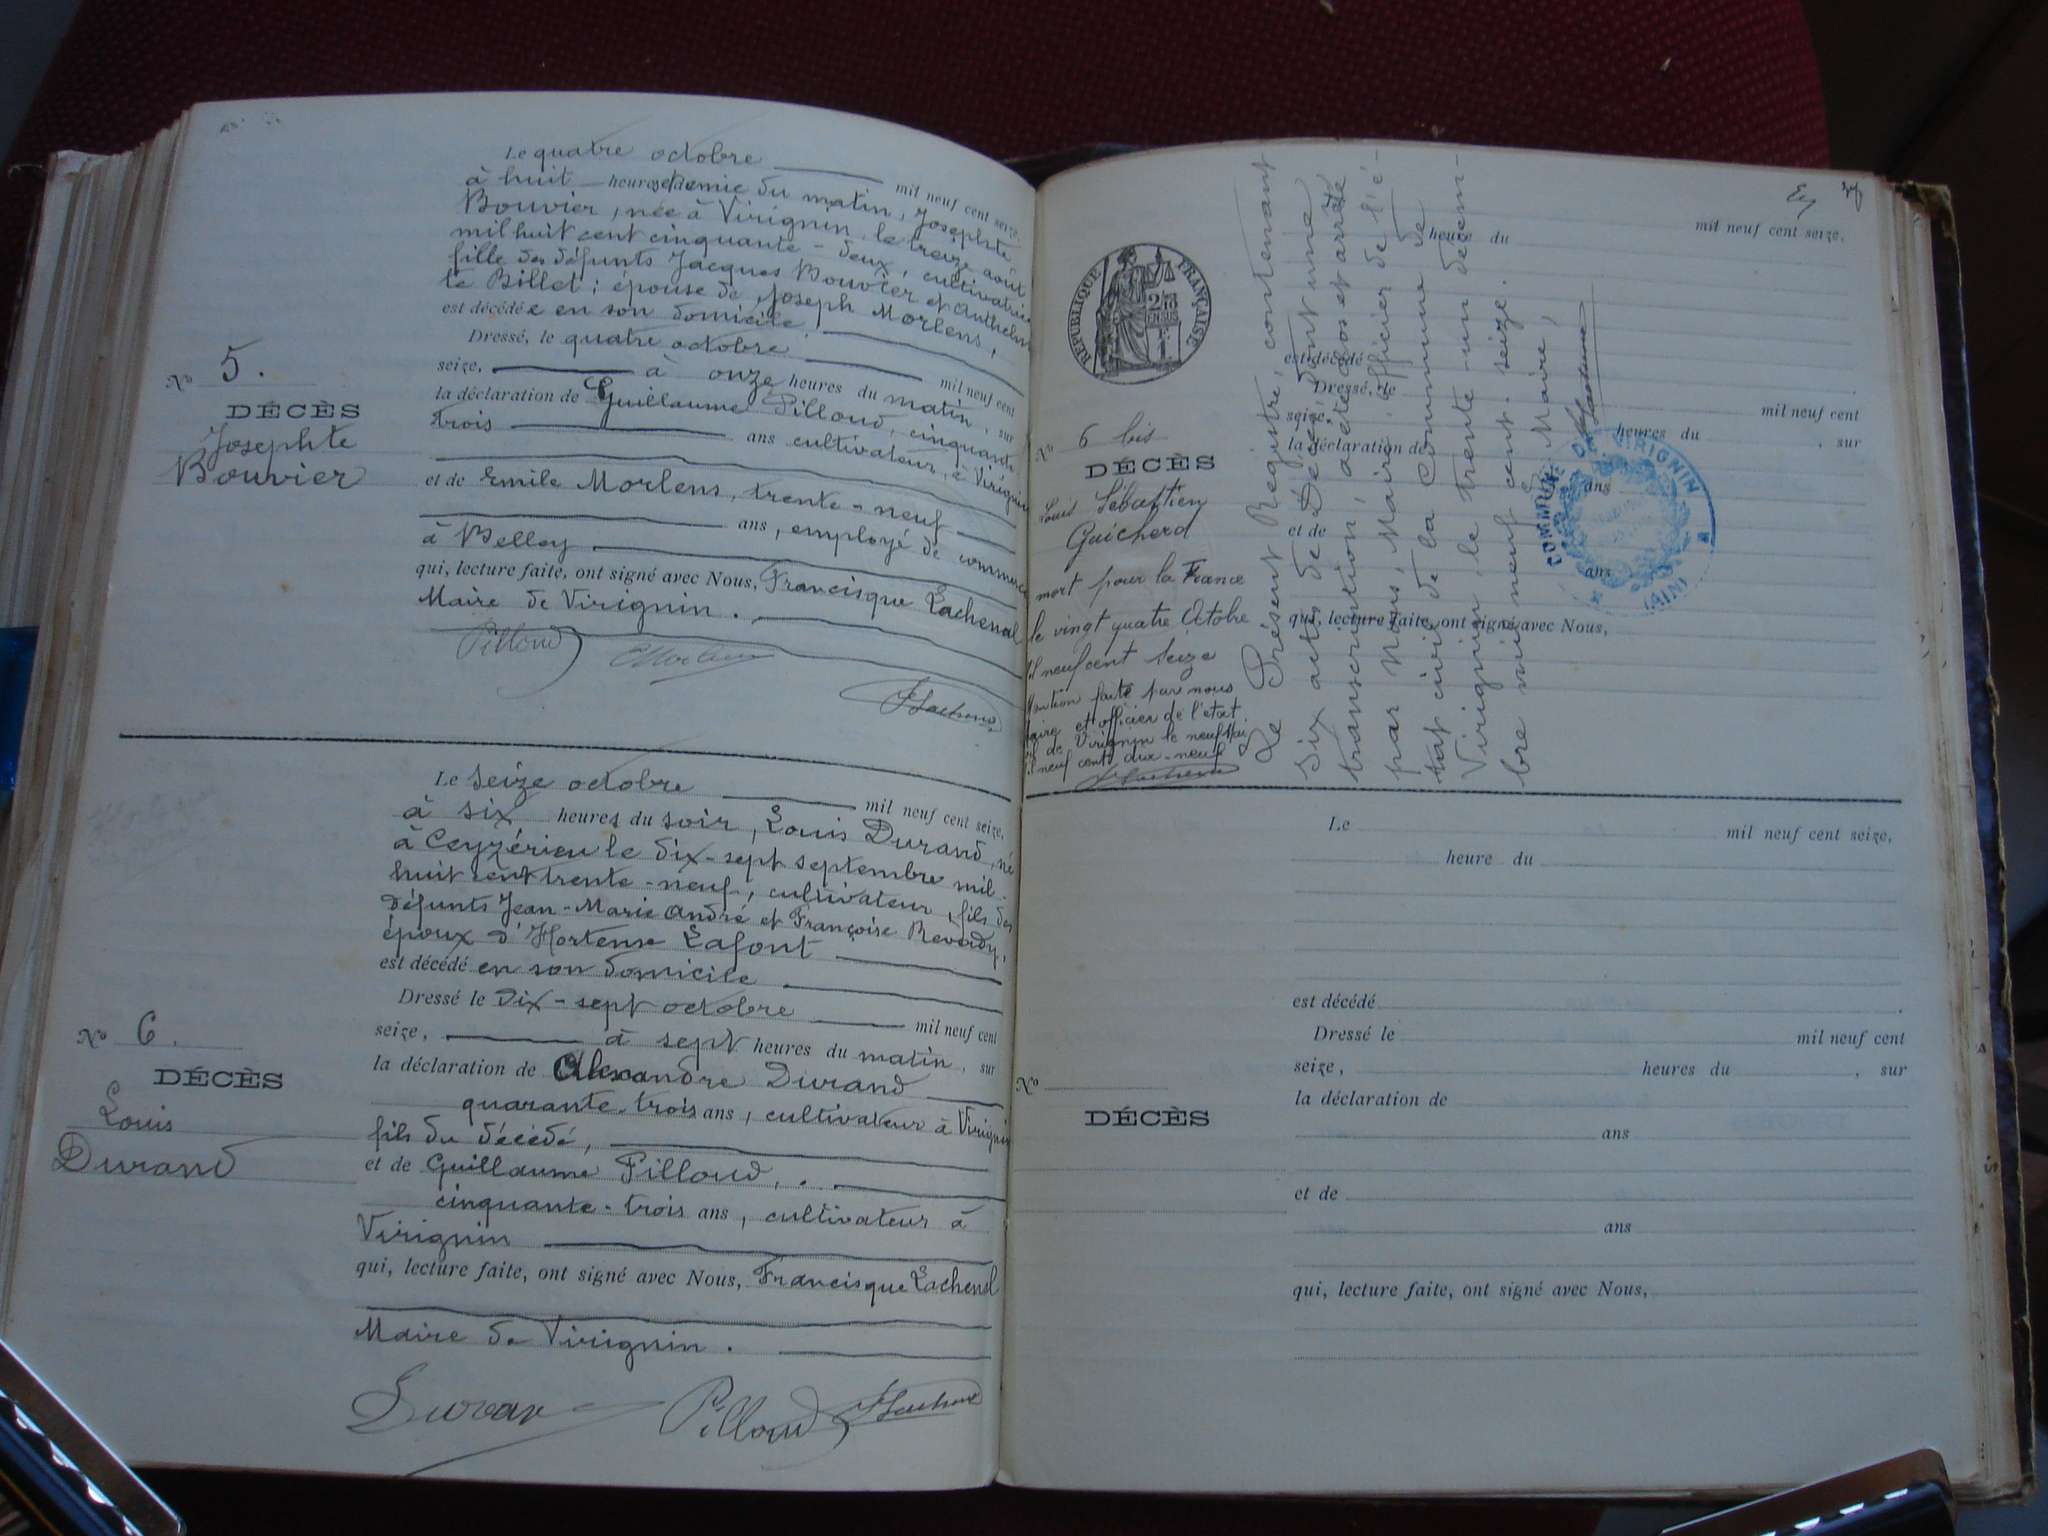 Le quatre octobre mil neuf cent seize,
à huit heures et demie du matin, Josephte
Bouvier, née à Virignin le treize août
mil huit cent cinquante-deux, cultivatrice
fille des défunts Jacques Bouvier et Anthelme
te Billet; épouse de Joseph Morlens,
est décédée en son domicile
Dressé, le quatre octobre mil neuf cent
seize, à onze heures du matin, sur
la déclaration de Guillaume Pilloud, cinquante
trois ans cultivateur, à Virignin
et de Emile Morlens, trente-neuf
ans, employé de commerce
à Belley
qui, lecture faite, ont signé avec Nous, Francisque Lachenal
Maire de Virignin.
Pilloud EMorlens
FLachenal
No 5.
DÉCÈS
Josephte
Bouvier
Le seize octobre mil neuf cent seize,
à six heures du soir, Louis Durand, né
à Ceyzérieu le dix-sept septembre mil-
huit cent trente-neuf, cultivateur, fils des
défunts Jean-Marie André et Françoise
époux d'Hortense Lafont
est décédé en son domicile
Dressé le Dix-sept octobre mil neuf cent
seize, à sept heures du matin, sur
la déclaration de Alexandre Durand
quarante-trois ans, cultivateur à Virignin
fils du décédé,
et de Guillaume Pilloud,
cinquante-trois ans, cultivateur à
Virignin
qui, lecture faite, ont signé avec Nous, Francisque Lachenal
Maire de Virignin.
Durand Pilloud FLachenal
No 6.
DÉCÈS
Louis
Durand
heure du mil neuf cent seize,
RÉPUBLIQUE FRANÇAISE
2/10
EN SUS
est décédé
Dressé, le mil neuf cent
seize, heures du , sur
la déclaration de
ans
et de
ans
qui, lecture faite, ont signé avec Nous,
No 6 bis
DÉCÈS
Louis Sébastien
Guicherd
mort pour la France
le vingt quatre Octobre
il neuf cent seize
Mention faite par nous
aire et officier de l'état
il de Virignin le neuf Mai
il neuf cent dix-neuf
FLachenal
Le Présent Registre, contenant
six actes de Décès dont une
transcription, a été clos et arrêté
par Nous, Maire, officier de l'é-
tat civil de la Commune de
Virignin, le trente-un décem-
bre mil neuf cent-seize.
Le Maire,
FLachenal
COMMUNE DE VIRIGNIN
(AIN)
Le mil neuf cent seize,
heure du
est décédé
Dressé le mil neuf cent
seize, heures du , sur
No
DÉCÈS
la déclaration de
ans
et de
ans
qui, lecture faite, ont signé avec Nous,